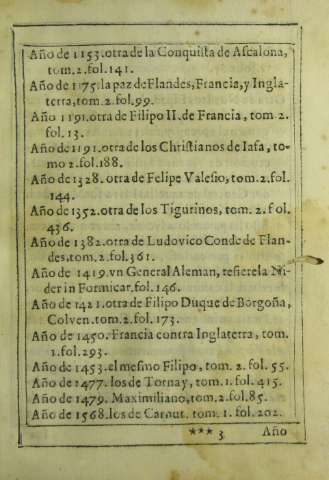 Año de 1153.otra de la Conquista de Ascalona,
tom.2.fol.141.
Año de 1175.la paz de Flandes, Francia, y Ingla-
terra, tom.2.fol.99.
Año 1191.otra de Filipo II.de Francia, tom.2.
fol.13.
Año de 1191.otra de los Christianos de Iafa, to-
mo 2.fol.188.
Año de 1328. otra de Felipe Valesio, tom.2.fol.
144.
Año de 1352.otra de los Tigurinos, tom. 2. fol.
436.
Año de 1382.otra de Ludovico Conde de Flan-
des, tom.2.fol.361.
Año de 1419.vn General Aleman, refierela Ni-
der in Formicar.fol.146.
Año de 1421.otra de Filipo Duque de Borgoña,
Colven.tom.2.fol.173.
Año de 1450. Francia contra Inglaterra, tom.
1.fol.293.
Año de 1453.el mesmo Filipo, tom.2.fol.55.
Año de 1477. los de Tornay, tom.1.fol.415.
Año de 1479. Maximiliano, tom.2.fol.85.
Año de 1568.los de Carnut. tom. 1. fol. 202.
*** 3 Año